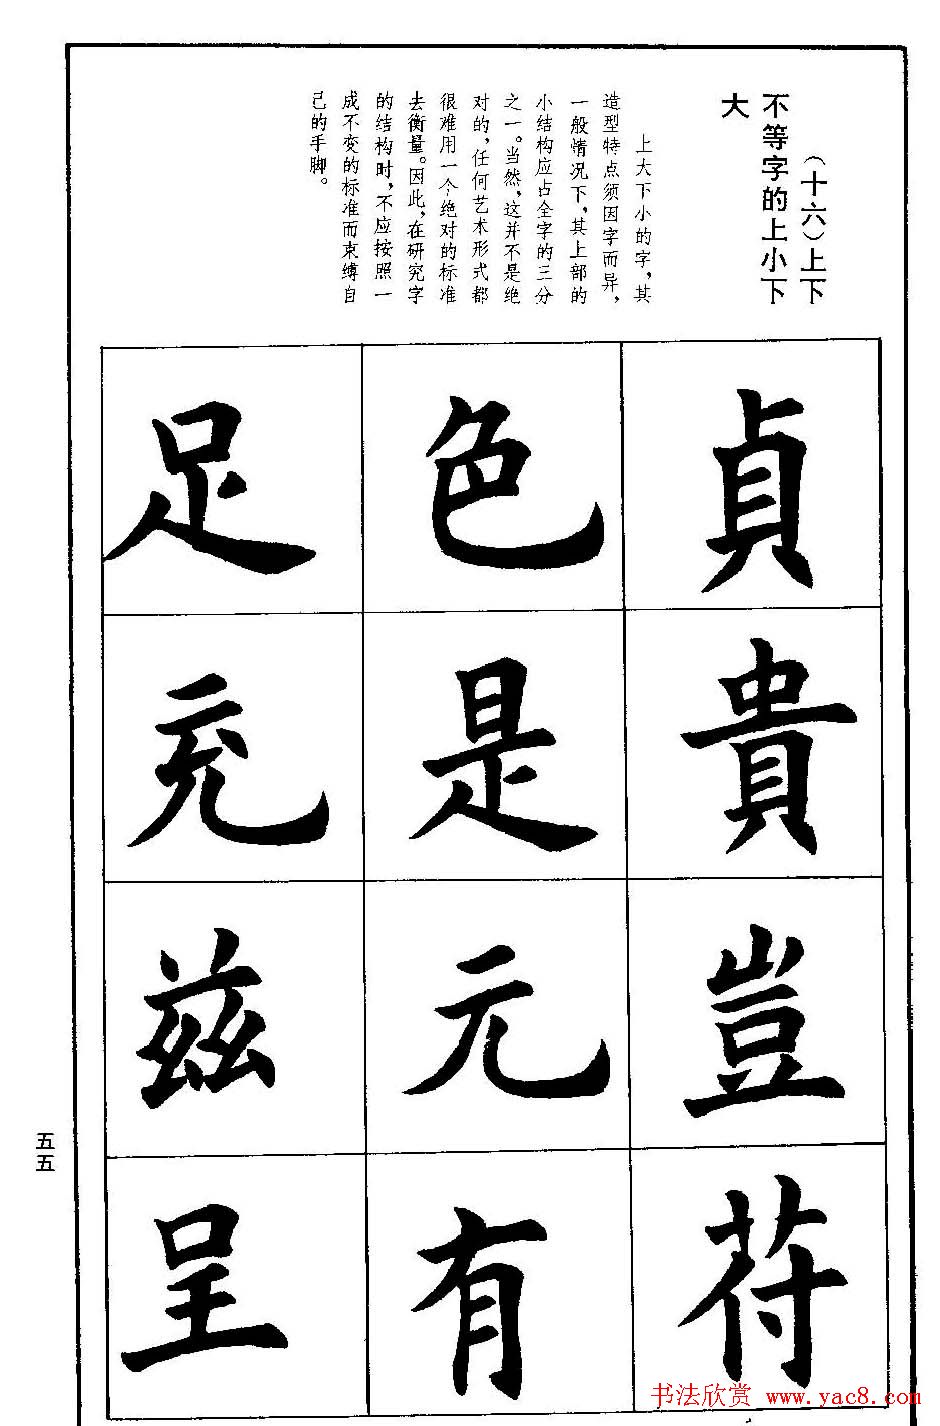 （十六）上下
不等字的上小下
大
上大下小的字，其
造型特点须因字而异，
一般情况下，其上部的
小结构应占全字的三分
之一。当然，这并不是绝
对的，任何艺术形式都
很难用一个绝对的标准
去衡量。因此，在研究字
的结构时，不应按照一
成不变的标准而束缚自
己的手脚。
貞
貴
豈
苻
色
是
元
有
足
充
兹
呈
五五
书法欣赏 www.yac8.com